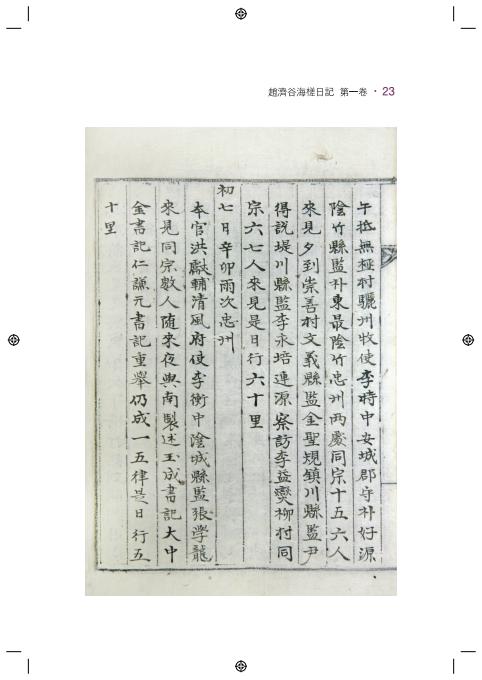 趙濟谷海槎日記 第一卷 · 23
午抵無極村驪州牧使李時中安城郡守朴好源
陰竹縣監朴東最陰竹忠州兩處同宗十五六人
來見夕到崇善村文義縣監金聖規鎭川縣監尹
得說堤川縣監李永培連源察訪李益爕柳村同
宗六七人來見是日行六十里
初七日辛卯雨次忠州
本官洪獻輔清風府使李衡中陰城縣監張學龍
來見同宗數人随來夜與南製述玉成書記大中
金書記仁謙元書記重擧仍成一五律是日行五
十里